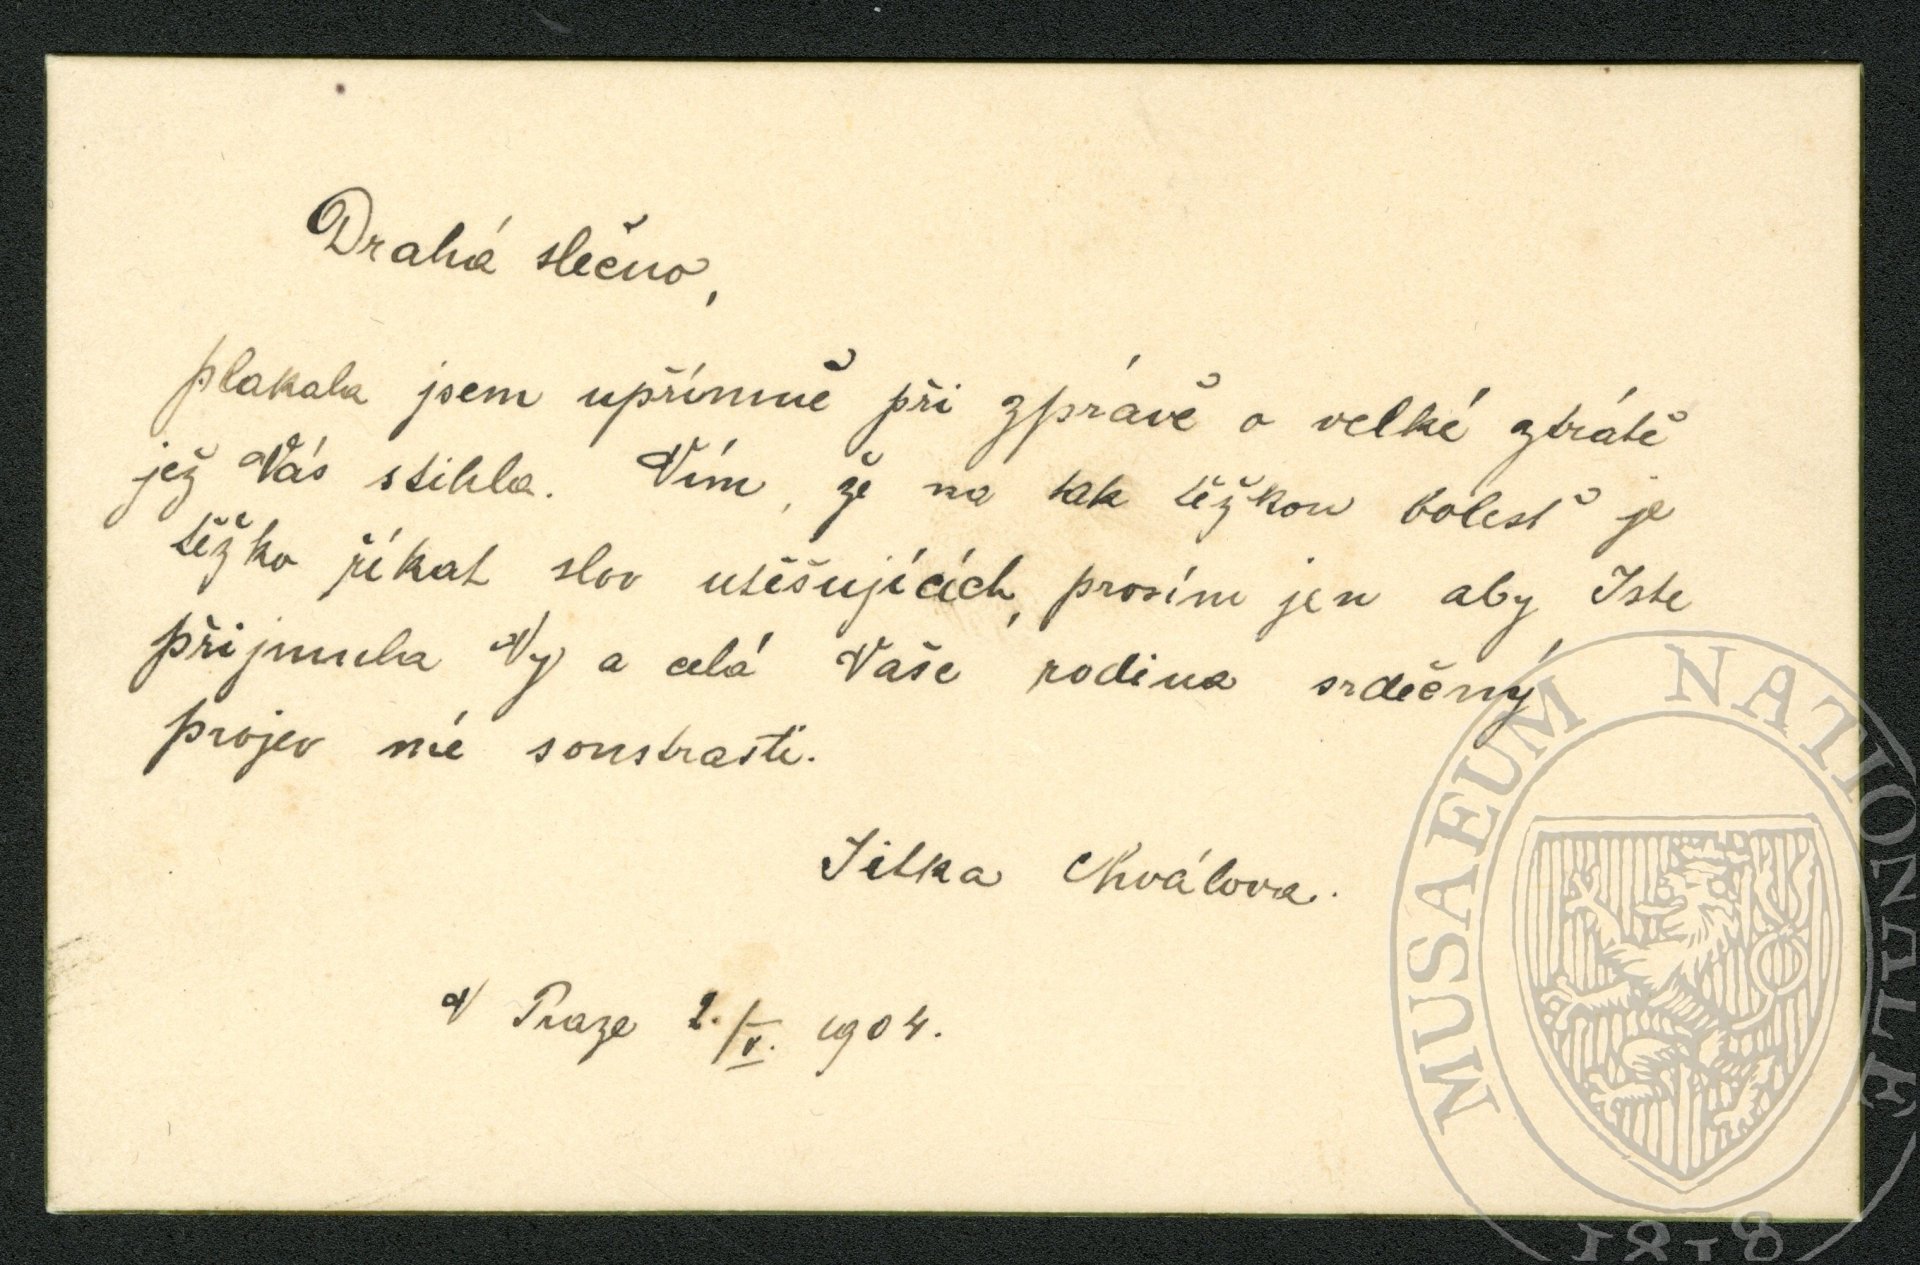 Drahá slečno,
plakala jsem upřímně při zprávě o velké ztrátě
jež Vás stihla. Vím, že na tak těžkou bolesť je
těžko říkat slov utěšujících, prosím jen aby Iste
přijmula Vy a celá Vaše rodina srdečný
projev mé soustrasti.
Jitka Chválova.
V Praze 2./V. 1904.
MUSAEUM NATIONALE
1818